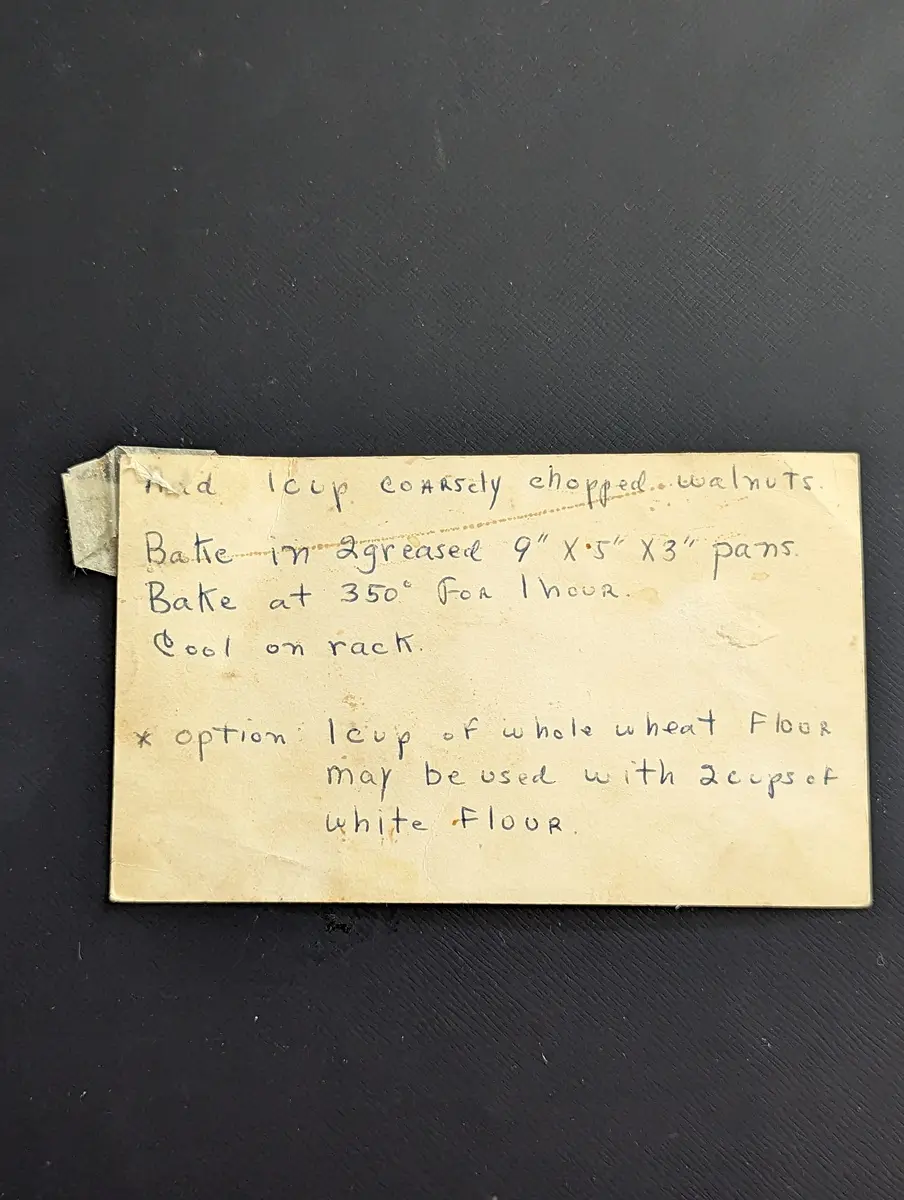 Add 1 cup coarsely chopped walnuts.
Bake in 2 greased 9" X 5" X 3" pans.
Bake at 350° for 1 hour.
Cool on rack.
* option: 1 cup of whole wheat flour
may be used with 2 cups of
white flour.